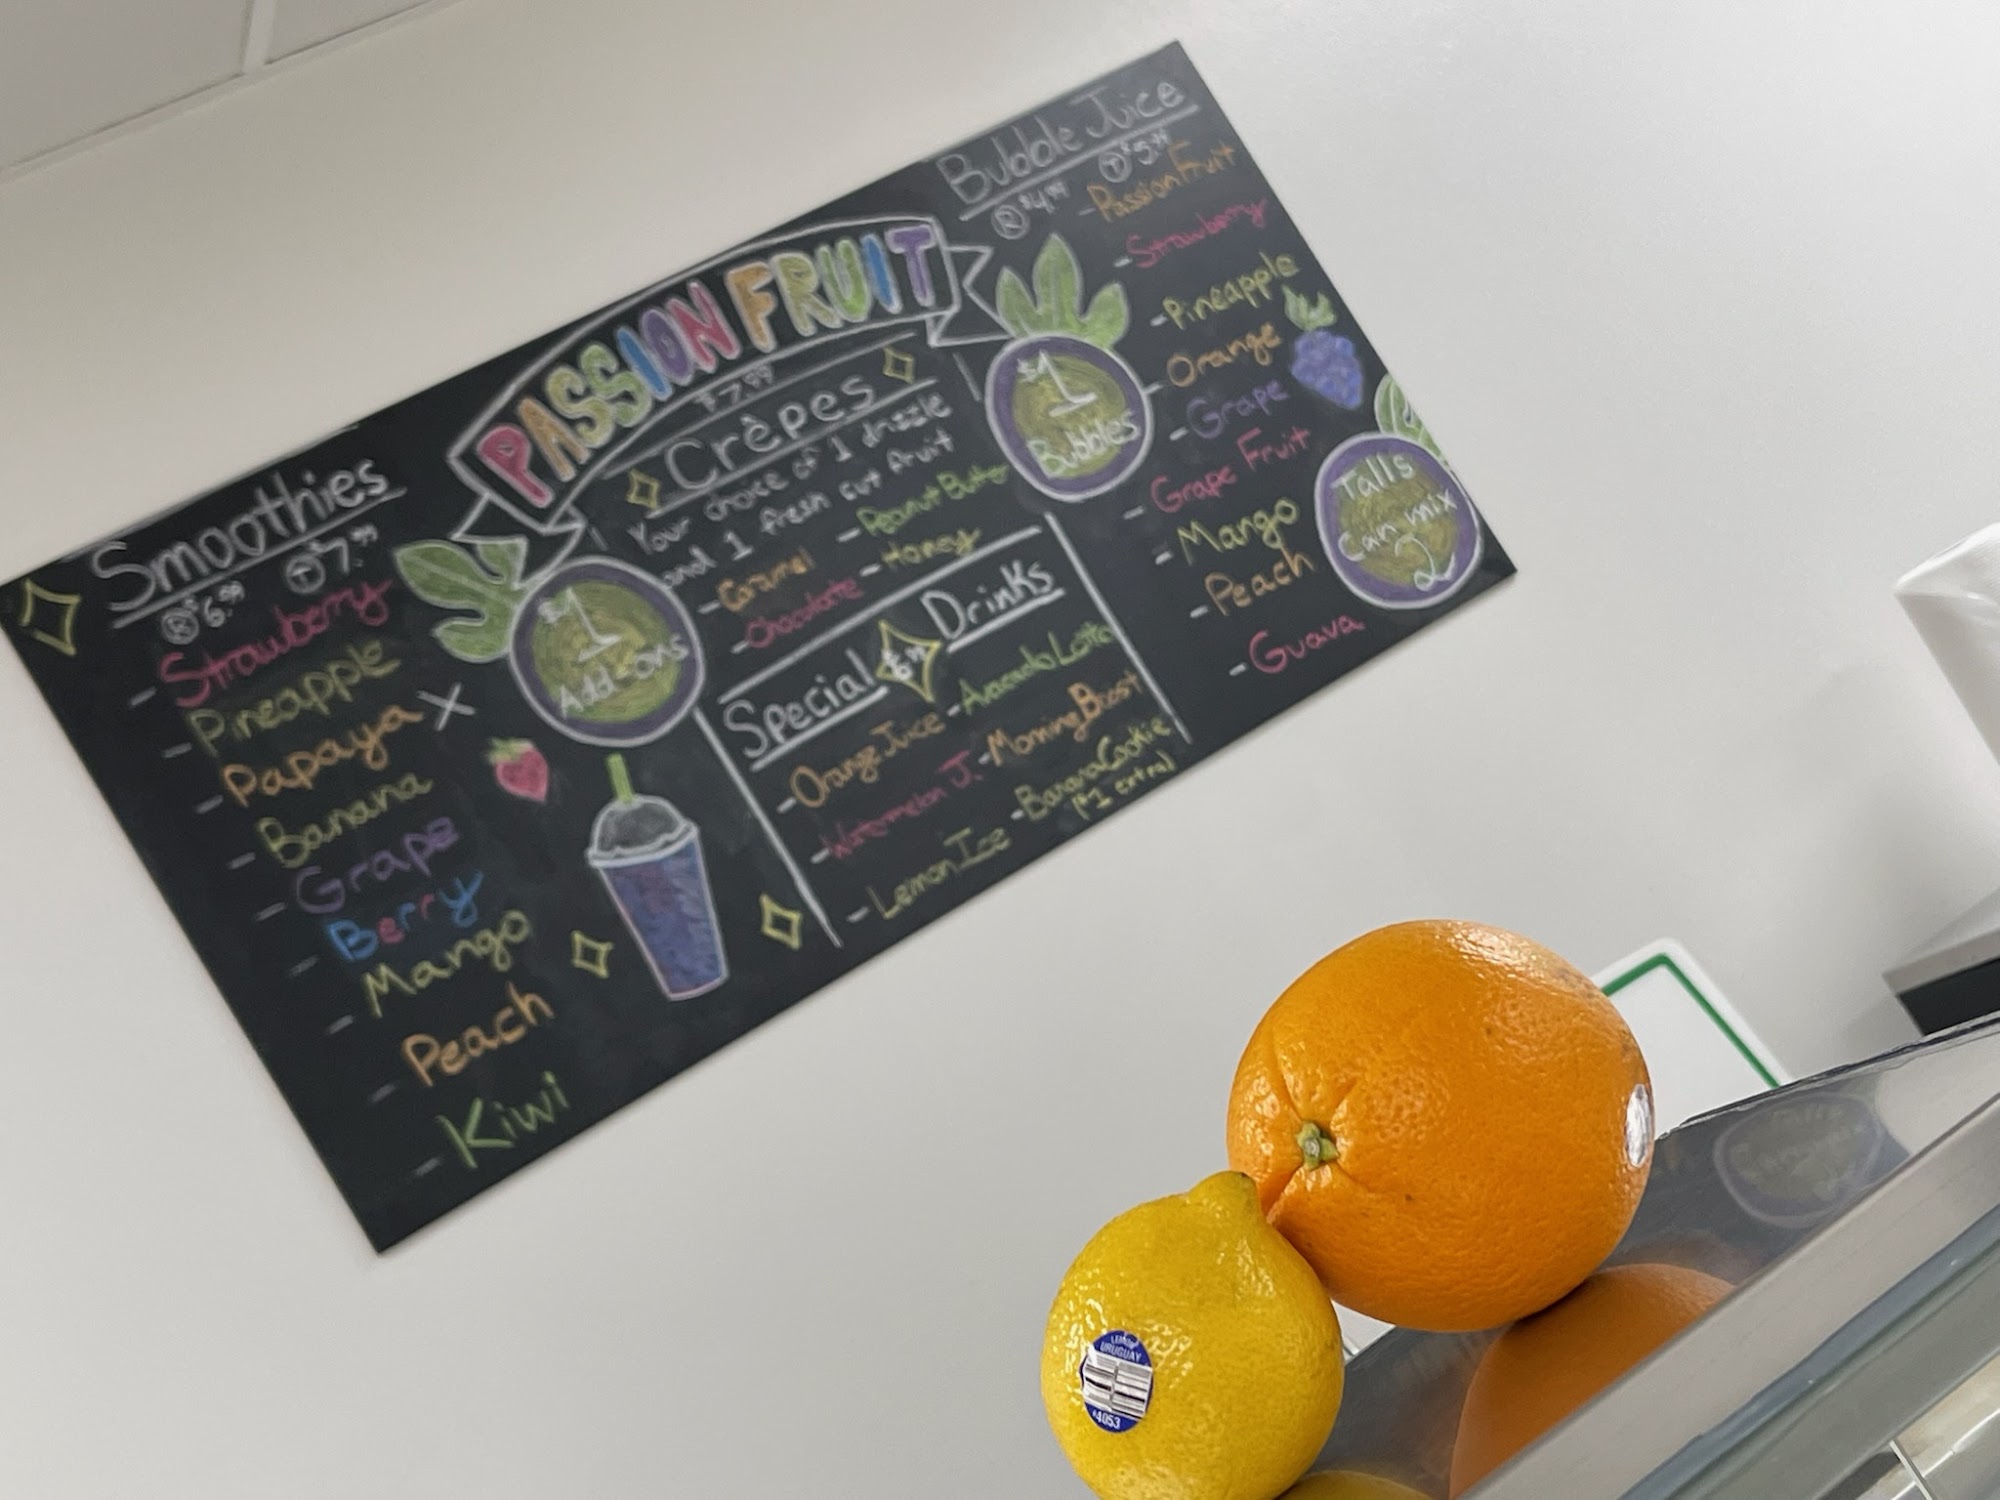 Smoothies
Ⓡ $6.99 Ⓣ $7.99
- Strawberry
- Pineapple
- Papaya X
- Banana
- Grape
- Berry
- Mango
- Peach
- Kiwi
$1
Add-ons
PASSION FRUIT
$7.99
Crèpes
Your choice of 1 drizzle
and 1 fresh cut fruit
- Caramel - Peanut Butter
- Chocolate - Honey
Special $6.99 Drinks
- Orange Juice - Avocado Latto
- Watermelon J. - Morning Boost
- Lemon Ice - Banana Cookie
($1 extra)
$1
Bubbles
Bubble Juice
Ⓡ $4.99 Ⓣ $5.99
- Passion Fruit
- Strawberry
- Pineapple
- Orange
- Grape
- Grape Fruit
- Mango
- Peach
- Guava
Talls
Can mix
2
LEMON
URUGUAY
#4053